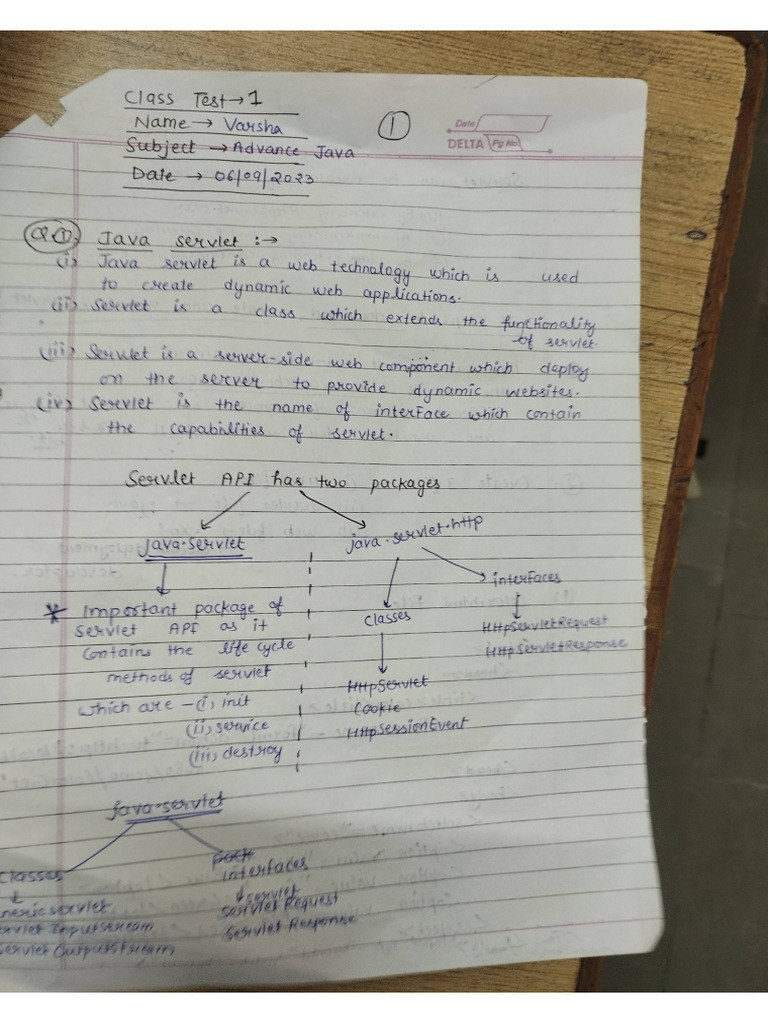 Class Test → 1
Name → Varsha
①
Date
DELTA Pg No.
Subject → Advance Java
Date → 06/09/2023
Q.① Java servlet :→
(i) Java servlet is a web technology which is used
to create dynamic web applications.
(ii) Servlet is a class which extends the functionality
of servlet
(iii) Servlet is a server-side web component which deploy
on the server to provide dynamic websites.
(iv) Servlet is the name of interface which contain
the capabilities of servlet.
Servlet API has two packages
java.servlet
java.servlet.http
* Important package of
servlet API as it
contains the life cycle
methods of servlet
which are - (i) init
(ii) service
(iii) destroy
classes
HttpServlet
Cookie
HttpSessionEvent
interfaces
HttpServletRequest
HttpServletResponse
java.servlet
classes
nericservlet
rvlet Inputstream
servlet Outputstream
interfaces
servlet
servlet Request
servlet Response